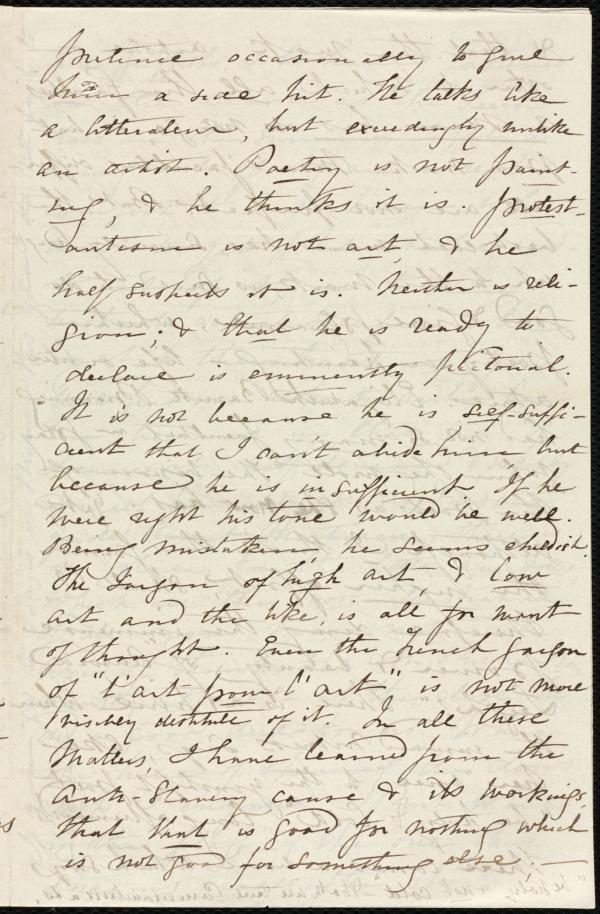 pretence occasionally to give
him a side hit. He talks like
a litterateur, but exceedingly unlike
an artist. Poetry is not paint-
ing, & he thinks it is. Protest-
antism is not art, & he
half suspects it is. Neither is reli-
gion; & that he is ready to
declare is eminently pictorial.
It is not because he is self-suffi-
cient that I can't abide him, but
because he is insufficient. If he
were right his tone would be well.
Being mistaken, he seems childish.
The Jargon of high art, & low
art and the like, is all for want
of thought. Even the French Jargon
of "l'art pour l'art", is not more
destitute of it. In all these
Matters, I have learned from the
Anti-Slavery cause & its workings,
that that is good for nothing which
is not good for something else; —